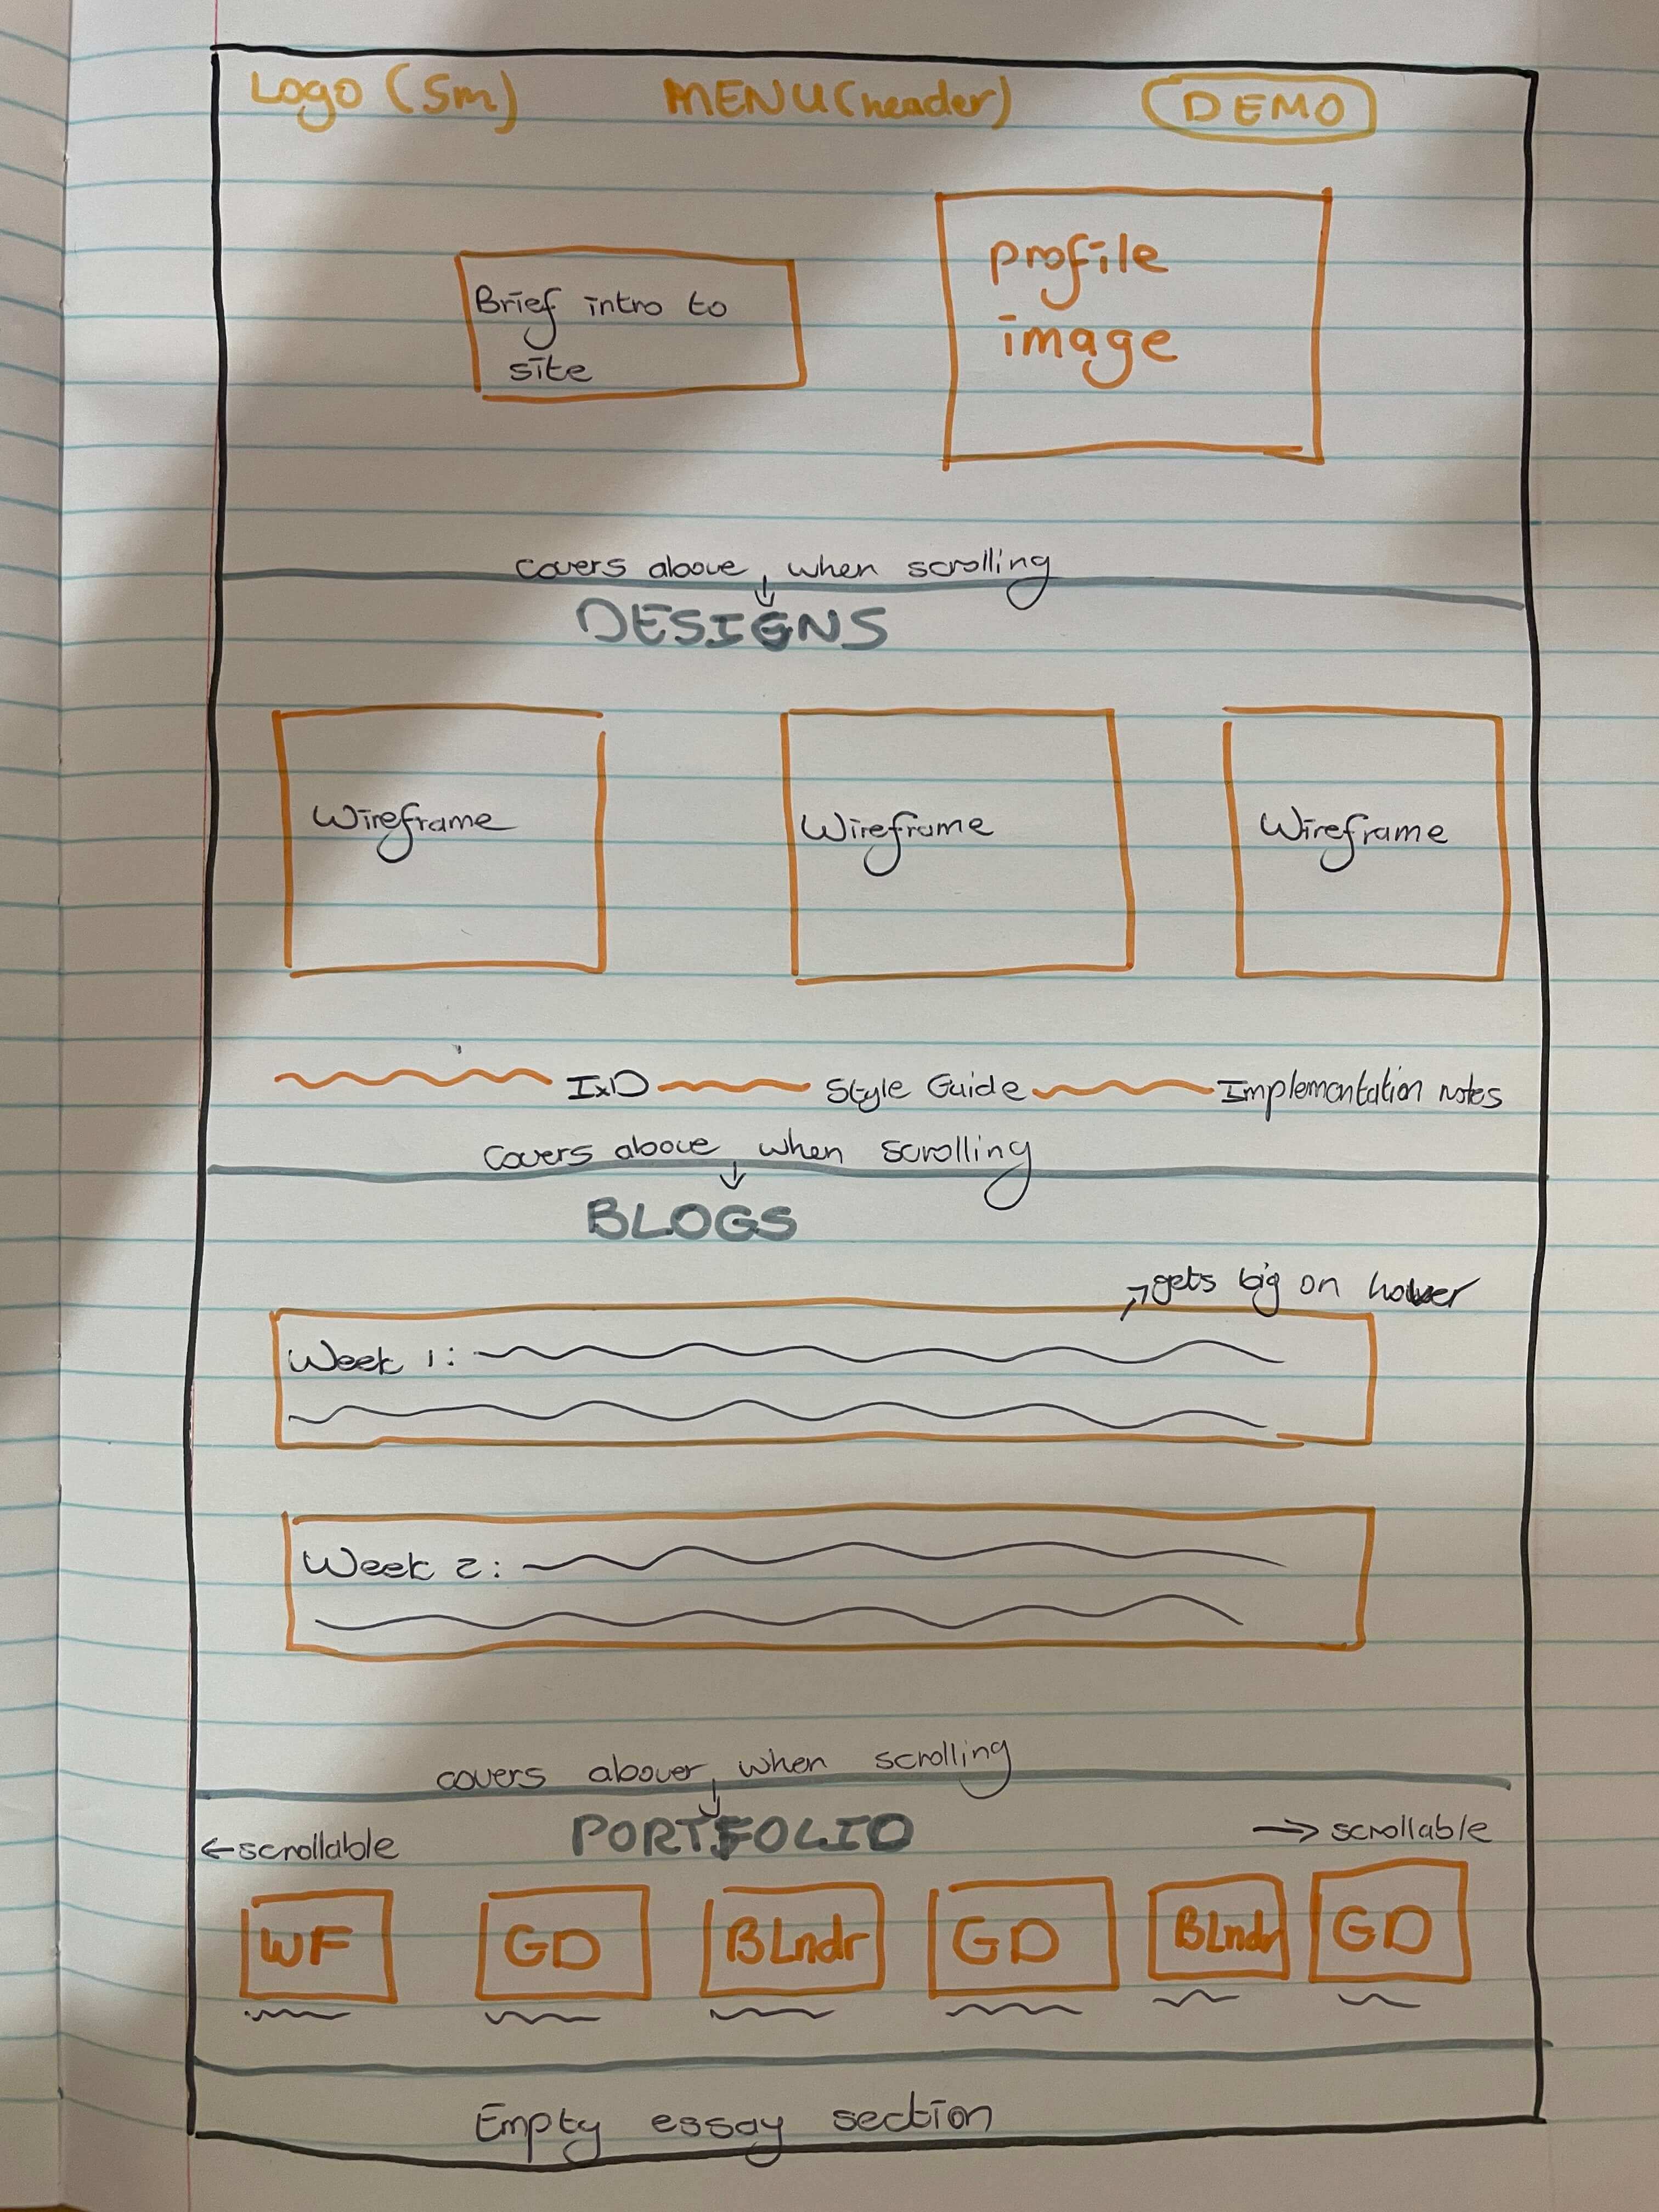 Logo (Sm) MENU (header) DEMO
profile
image
Brief intro to
site
covers above, when scrolling
DESIGNS
Wireframe Wireframe Wireframe
IxD Style Guide Implementation notes
Covers above, when scrolling
BLOGS
gets big on hover
Week 1:
Week 2:
covers abover, when scrolling
PORTFOLIO
scrollable scrollable
WF GD BLndr GD BLndr GD
Empty essay section